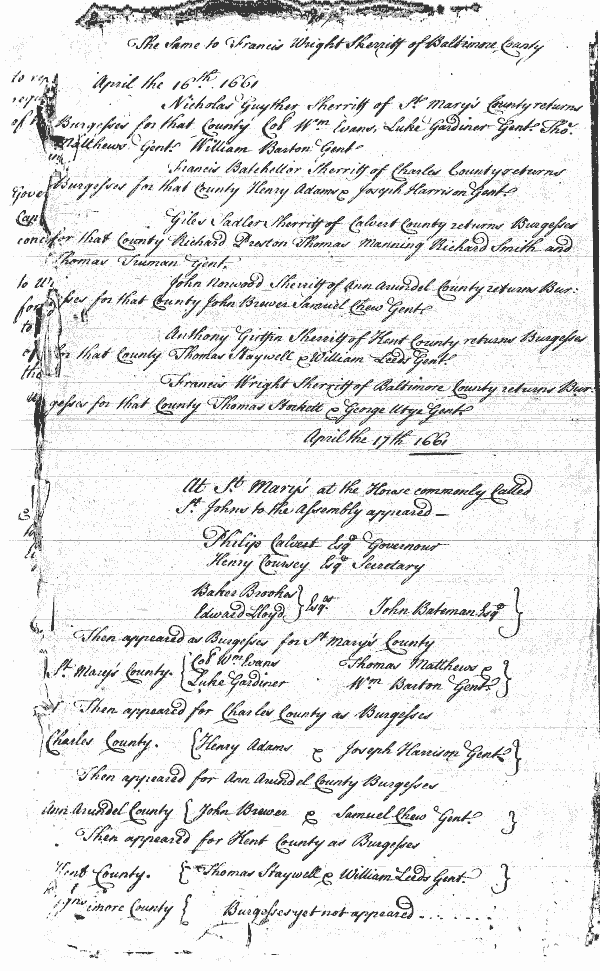 The Same to Francis Wright Sherriff of Baltimore County
April the 16th. 1661
Nicholas Guyther Sherriff of St. Mary's County returns
Burgesses for that County Col Wm Evans, Luke Gardiner Gent. Tho.
Matthews Gent. William Barton Gent
Francis Batchellor Sherriff of Charles County returns
Burgesses for that County Henry Adams & Joseph Harrison Gent.
Giles Sadler Sherriff of Calvert County returns Burgesses
for that County Richard Preston Thomas Manning Richard Smith and
Thomas Truman Gent.
John Norwood Sherriff of Ann Arundel County returns Bur:
sses for that County John Brewer Samuel Chew Gent
Anthony Griffin Sherriff of Kent County returns Burgesses
for that County Thomas Staywell & William Leeds Gent.
Francis Wright Sherriff of Baltimore County returns Bur:
gesses for that County Thomas Stockett & George Utye Gent
April the 17th 1661
At St. Mary's at the House commonly Called
St. Johns to the Assembly appeared —
Philip Calvert Esqr. Governour
Henry Coursey Esqr. Secretary
Baker Brookes
Edward Lloyd } Esqrs. John Bateman Esqr. }
Then appeared as Burgesses for St. Mary's County
St. Mary's County. { Col Wm Evans Thomas Matthews &
Luke Gardiner Wm Barton Gent. }
Then appeared for Charles County as Burgesses
Charles County. { Henry Adams & Joseph Harrison Gent. }
Then appeared for Ann Arundel County Burgesses
Ann Arundel County { John Brewer & Samuel Chew Gent. }
Then appeared for Kent County as Burgesses
Kent County. { Thomas Staywell & William Leeds Gent. }
imore County { Burgesses yet not appeared . . . . . .